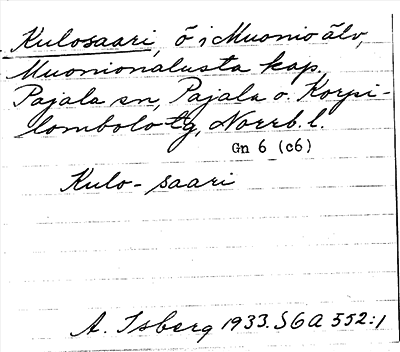 Kulosaari, ö i Muonio älv,
Muonionalusta kap.
Pajala sn, Pajala o. Korpi-
lombolo tg, Norrb. l.
Gn 6 (c6)
Kulo-saari
A. Isberg 1933. SGA 552:1